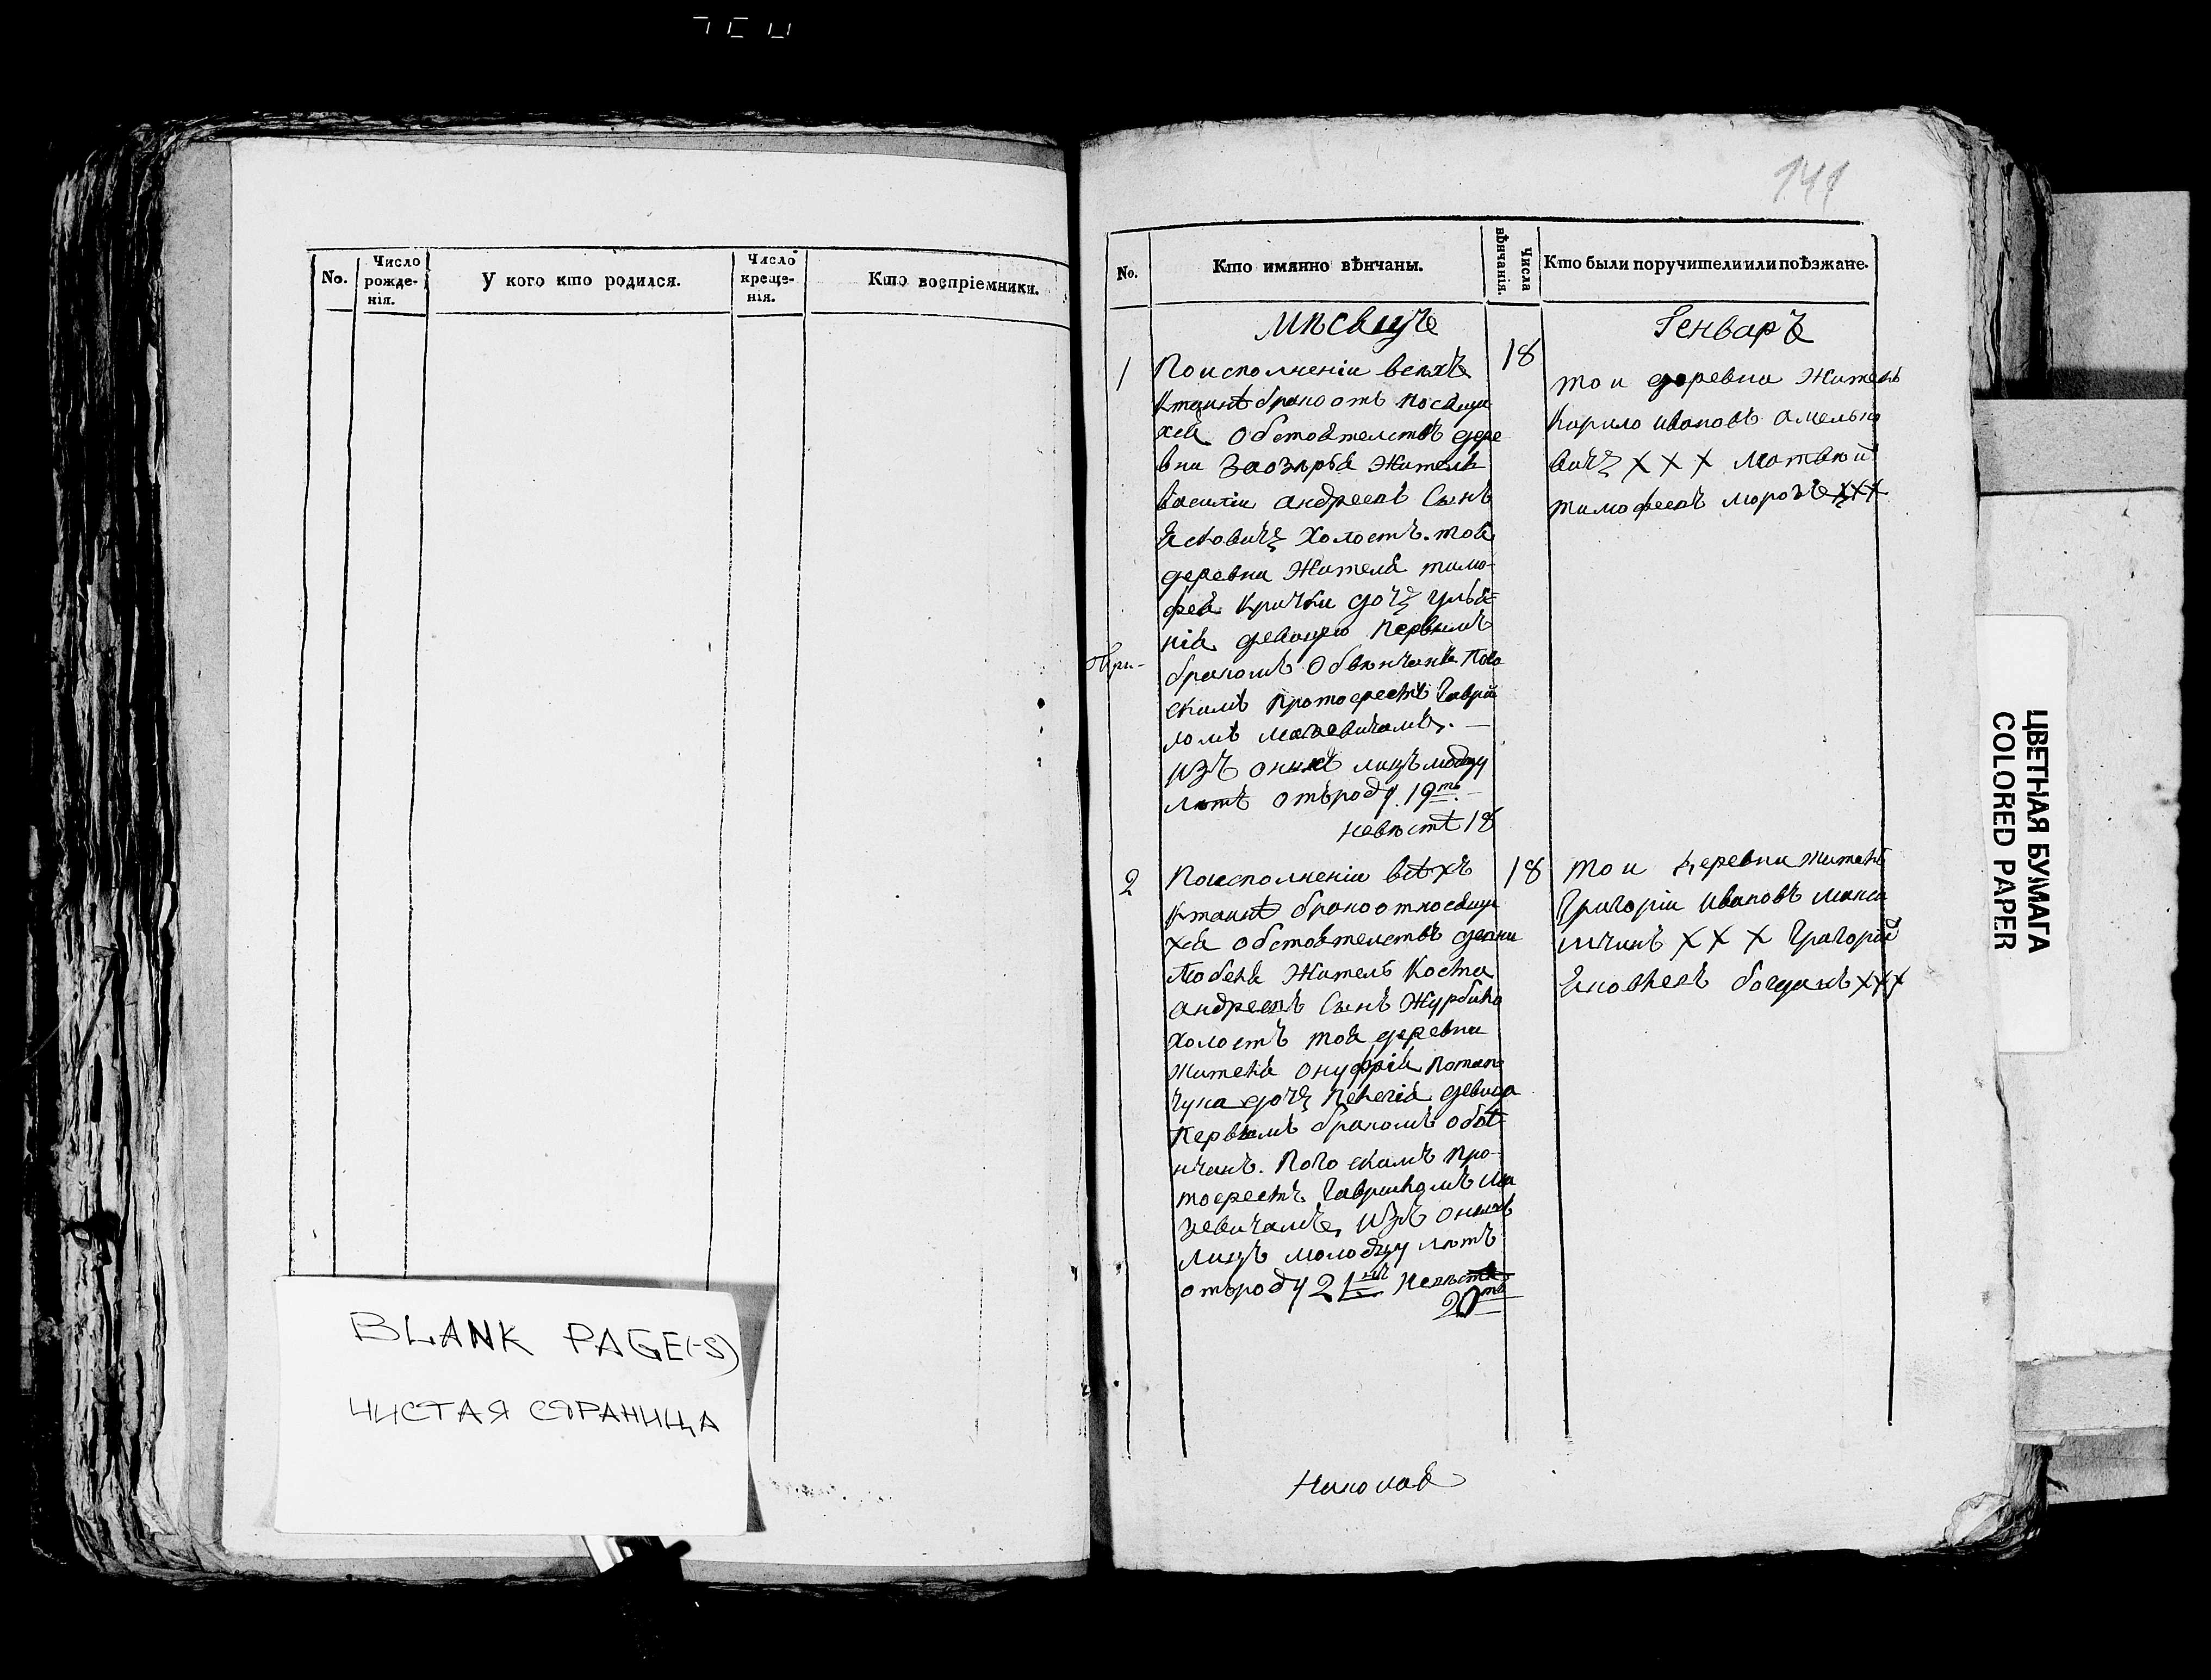 No.
Число рожде-нія.
У кого кто родился.
Число креще-нія.
Кто воспріемники.
BLANK PAGE(-S)
ЧИСТАЯ СТРАНИЦА
141
No.
Кто имянно вѣнчаны.
Числа вѣнчанія.
Кто были поручители или поѣзжане.
мѣсяцъ
Генварь
1
По исполненіи всѣхъ
ктаинѣ брако отъ носящи
хся обстоятелствъ дере
вни Заозеръя Житель
василіи андреевъ Сынъ
Яковичъ Холостъ. тоя
деревни Жителя тимо-
фея Крички дочъ улья-
нія девицею Первымъ
бракомъ Обвѣнчанъ
скимъ Протоереемъ Гаври
ломъ
изъ оныхъ лицъ молодцу
лѣтъ отъроду 19ть
невѣстѣ 18
18
тои деревни Житель
Кирило ивановъ амелько
вичъ ххх Матвѣй
тимофеевъ морозъ ххх
2
По исполненіи всѣхъ
ктаинѣ брако относящи
хся обстоятелствъ
Любеня Житель Коста
андреевъ Сынъ Журбико
холостъ тоя деревни
жителя онуфрія Потап
чука дочъ Пелегія девица
Первымъ бракомъ обвѣ-
нчанъ. Пого скимъ Про-
тоереемъ Гавриломъ Ма
зевичамъ, Изъ оныхъ
Лицъ молодцу лѣтъ
отъроду 21 Невѣстѣ
20ть
18
тои Деревни Житель
Григоріи ивановъ макси
мчикъ ххх Григорій
богданъ ххх
Николай
ЦВЕТНАЯ БУМАГА
COLORED PAPER